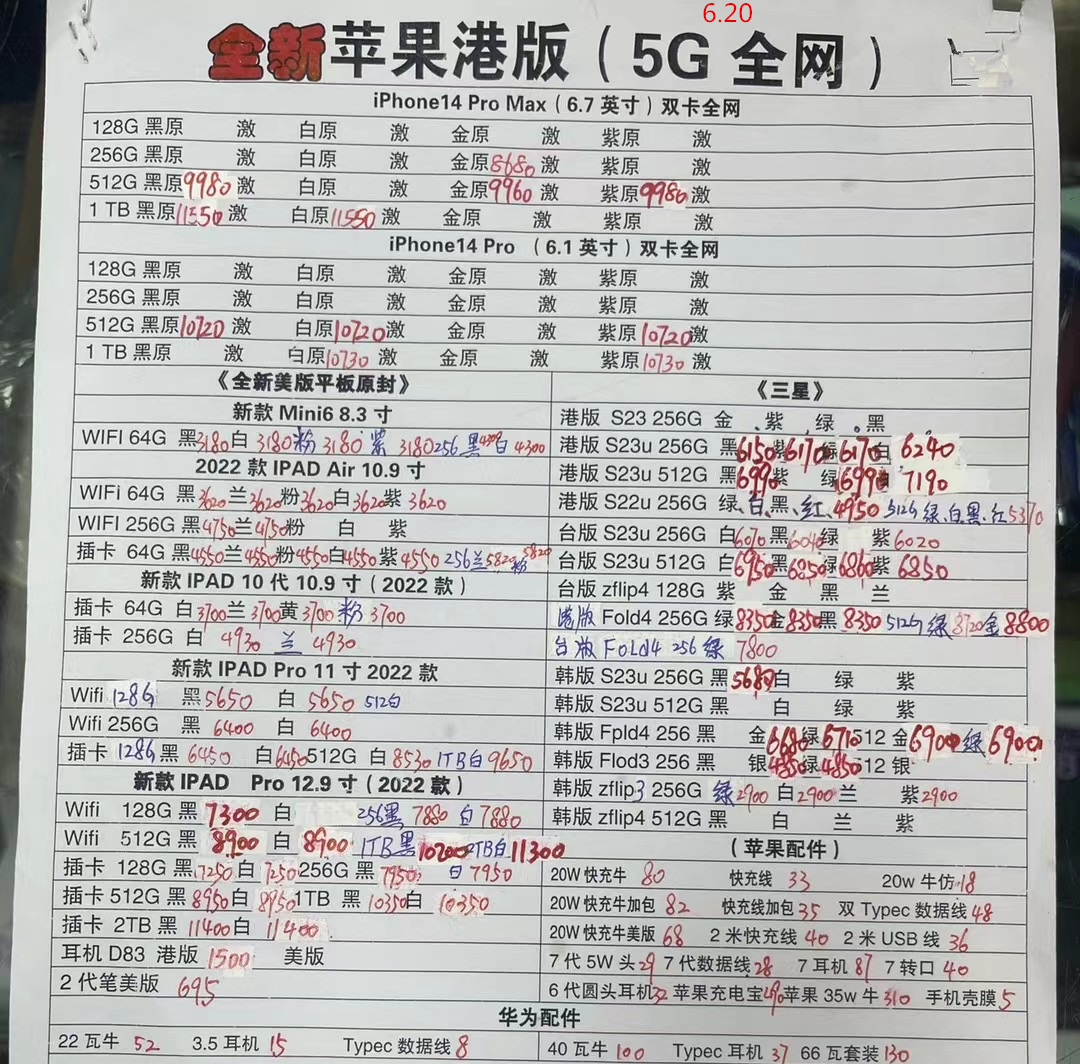 6.20
全新苹果港版（5G 全网）
iPhone14 Pro Max（6.7 英寸）双卡全网
128G 黑原 激 白原 激 金原 激 紫原 激
256G 黑原 激 白原 激 金原8680 激 紫原 激
512G 黑原9980 激 白原 激 金原9960 激 紫原9980 激
1 TB 黑原11550 激 白原11550 激 金原 激 紫原 激
iPhone14 Pro （6.1 英寸）双卡全网
128G 黑原 激 白原 激 金原 激 紫原 激
256G 黑原 激 白原 激 金原 激 紫原 激
512G 黑原10720 激 白原10720激 金原 激 紫原10720激
1 TB 黑原 激 白原10730 激 金原 激 紫原10730 激
《全新美版平板原封》
新款 Mini6 8.3 寸
WIFI 64G 黑3180白 3180粉 3180 紫 3180 256 黑4300白 4300
2022 款 IPAD Air 10.9 寸
WIFi 64G 黑3620兰3620粉3620白3620紫 3620
WIFI 256G 黑4750兰4750粉 白 紫
插卡 64G 黑4550兰4550粉4550白4550紫 4550 256兰5820粉5820
新款 IPAD 10 代 10.9 寸（2022 款）
插卡 64G 白3700兰3700黄3700粉 3700
插卡 256G 白 4930 兰 4930
新款 IPAD Pro 11 寸 2022 款
Wifi 128G 黑5650 白 5650 512白
Wifi 256G 黑 6400 白 6400
插卡 128G 黑 6450 白6450 512G 白8530 1TB白9650
新款 IPAD Pro 12.9 寸（2022 款）
Wifi 128G 黑 7300 白 256黑 7880 白 7880
Wifi 512G 黑 8900 白 8900 1TB黑10200 2TB白11300
插卡 128G 黑7250白 7250 256G 黑 7950 白7950
插卡 512G 黑8950白8950 1TB 黑 10350白 10350
插卡 2TB 黑11400白 11400
耳机 D83 港版 1500 美版
2 代笔美版 695
《三星》
港版 S23 256G 金 紫 绿 黑
港版 S23u 256G 黑6150紫6170绿6170白 6240
港版 S23u 512G 黑6990紫 绿6990白 7190
港版 S22u 256G 绿、白、黑、红、4950 512G 绿、白、黑、红5370
台版 S23u 256G 白6070黑6040绿 紫6020
台版 S23u 512G 白6950黑6850绿6860紫 6850
台版 zflip4 128G 紫 金 黑 兰
港版 Fold4 256G 绿8350金8350黑 8350 512G 绿8720金8800
台版 Fold4 256 绿 7800
韩版 S23u 256G 黑5680白 绿 紫
韩版 S23u 512G 黑 白 绿 紫
韩版 Fpld4 256 黑 金6680绿6710 512 金6900绿6900
韩版 Flod3 256 黑 银4850绿4850 512 银
韩版 zflip3 256G 绿2900 白2900兰 紫2900
韩版 zflip4 512G 黑 白 兰 紫
（苹果配件）
20W 快充牛 80 快充线 33 20w 牛仿18
20W 快充牛加包 82 快充线加包35 双 Typec 数据线48
20W 快充牛美版 68 2 米快充线 40 2 米 USB 线 36
7 代 5W 头29 7 代数据线28 7 耳机 87 7 转口 40
6 代圆头耳机32 苹果充电宝490苹果 35w 牛310 手机壳膜5
华为配件
22 瓦牛 52 3.5 耳机 15 Typec 数据线8
40 瓦牛 100 Typec 耳机 37 66 瓦套装130